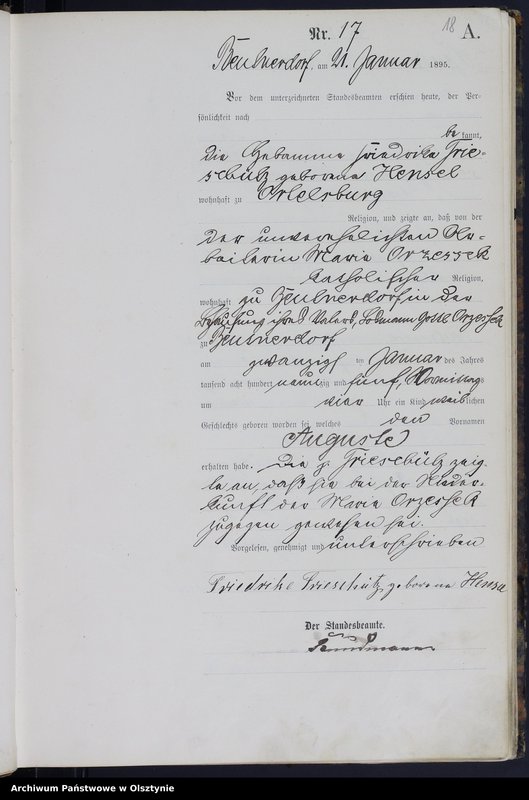 18
Nr. 17 A.
Beutnerdorf, am 21. Januar 1895.
Vor dem unterzeichneten Standesbeamten erschien heute, der Per-
sönlichkeit nach
be kannt,
die Hebamme Friedrike Frie-
schütz geborene Hensel
wohnhaft zu Ortelsburg
Religion, und zeigte an, daß von der
der unverehelichten Ar-
beiterin Marie Orzessek
katholischer Religion,
wohnhaft zu Beutnerdorf in der
Behausung ihres Vaters, Losmann Gottl. Orzessek
zu Beutnerdorf
am zwanzigst ten Januar des Jahres
tausend acht hundert neunzig und fünf, Vormittags
um vier Uhr ein Kind weiblichen
Geschlechts geboren worden sei, welches den Vornamen
Auguste
erhalten habe. Die p. Frieschütz zeig-
te an, daß sie bei der Nieder-
kunft der Marie Orzessek
zugegen gewesen sei.
Vorgelesen, genehmigt und unterschrieben
Friedrike Frieschütz, geborene Hensel
Der Standesbeamte.
Archiwum Państwowe w Olsztynie